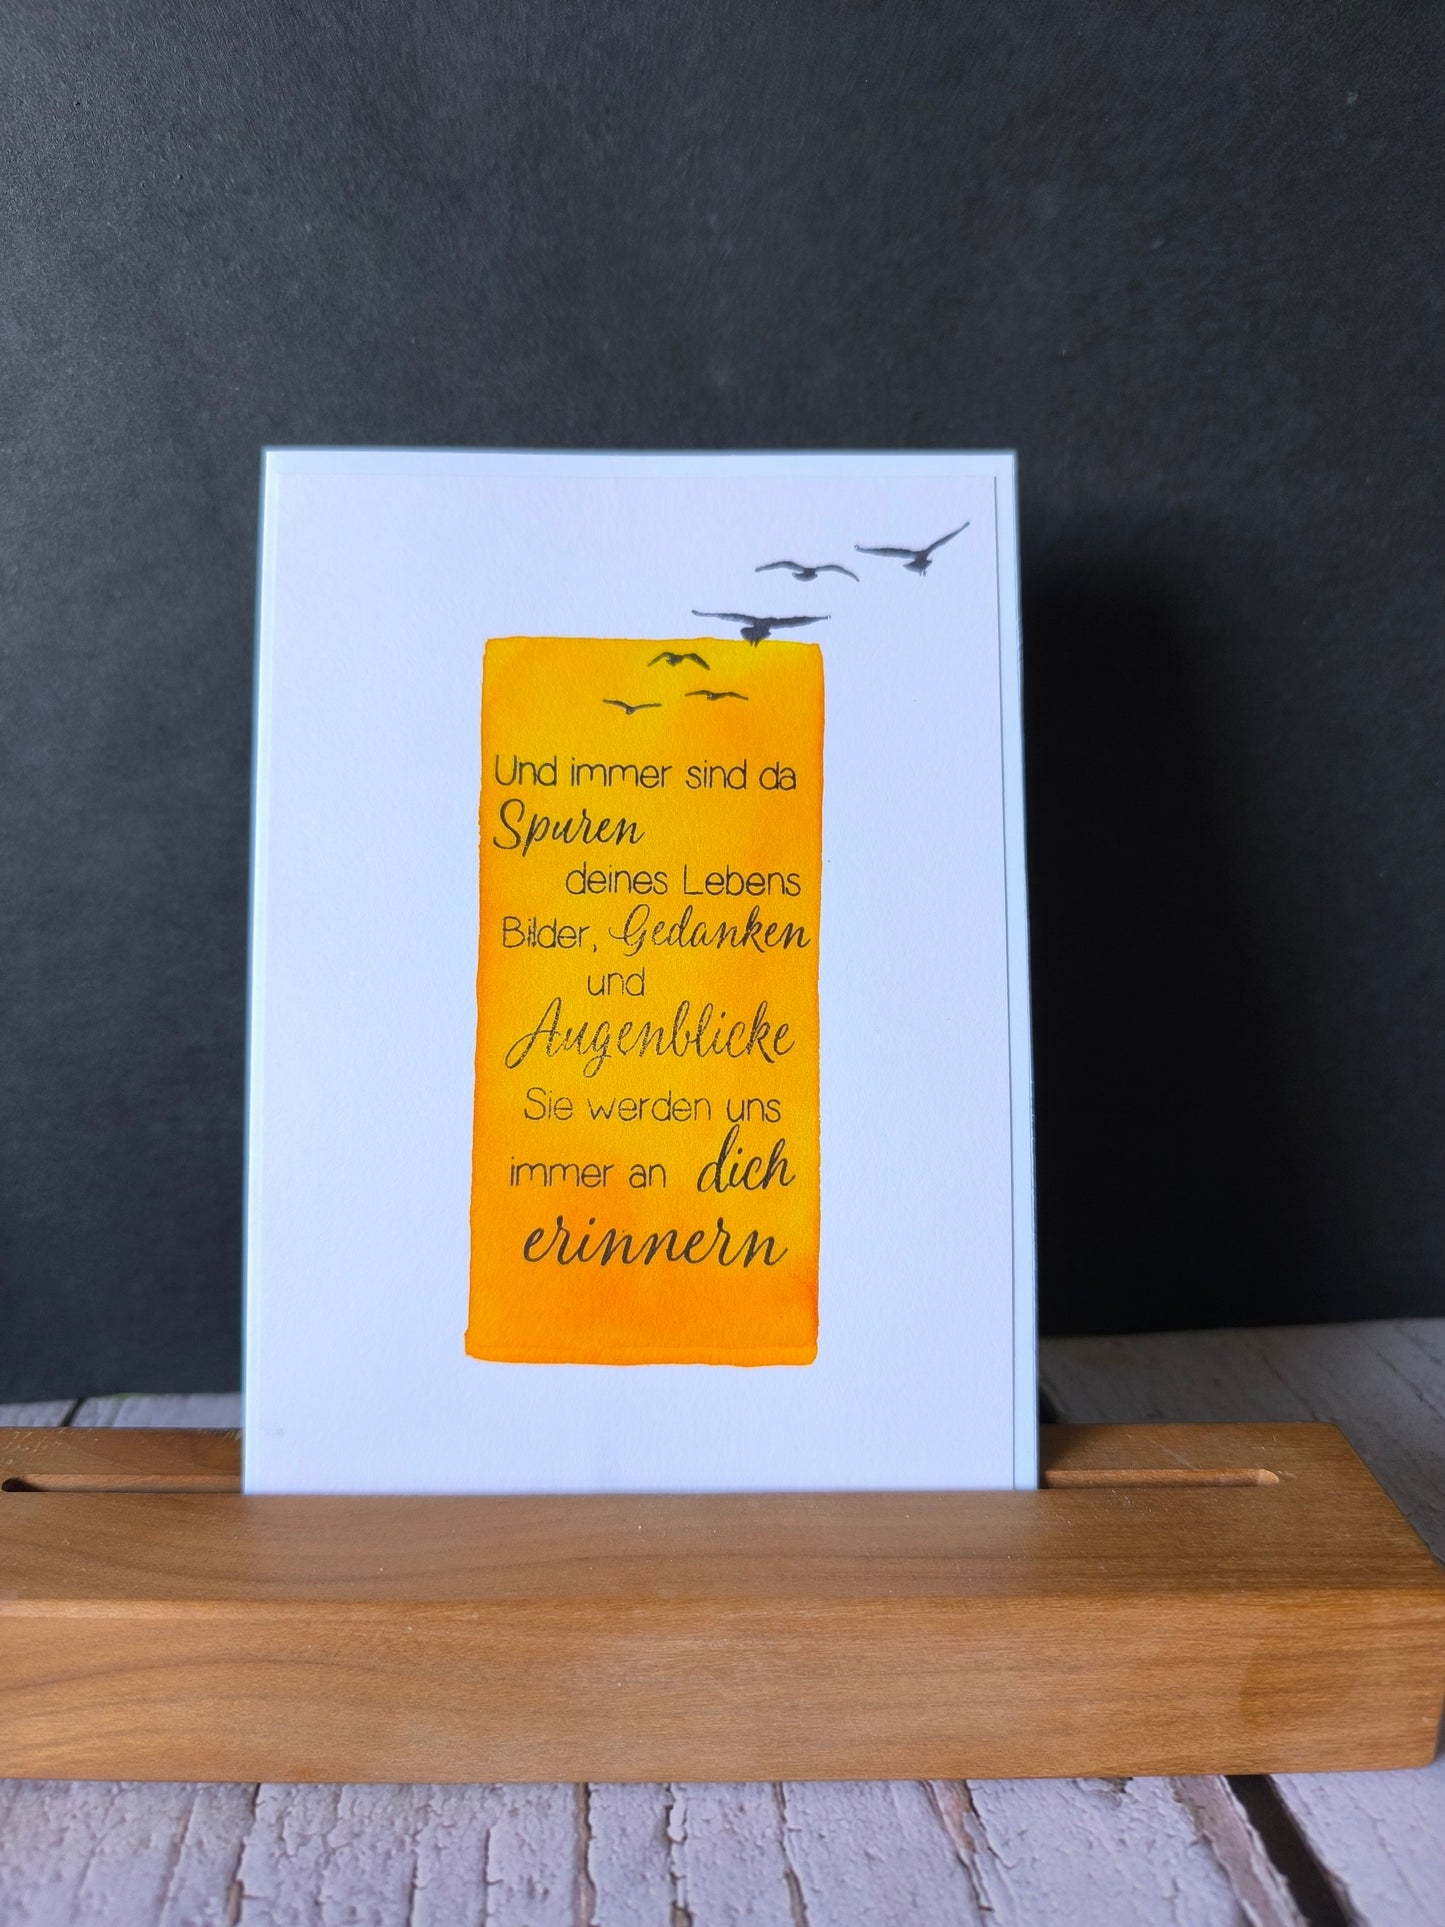 Und immer sind da
Spuren
deines Lebens
Bilder, Gedanken
und
Augenblicke
Sie werden uns
immer an dich
erinnern